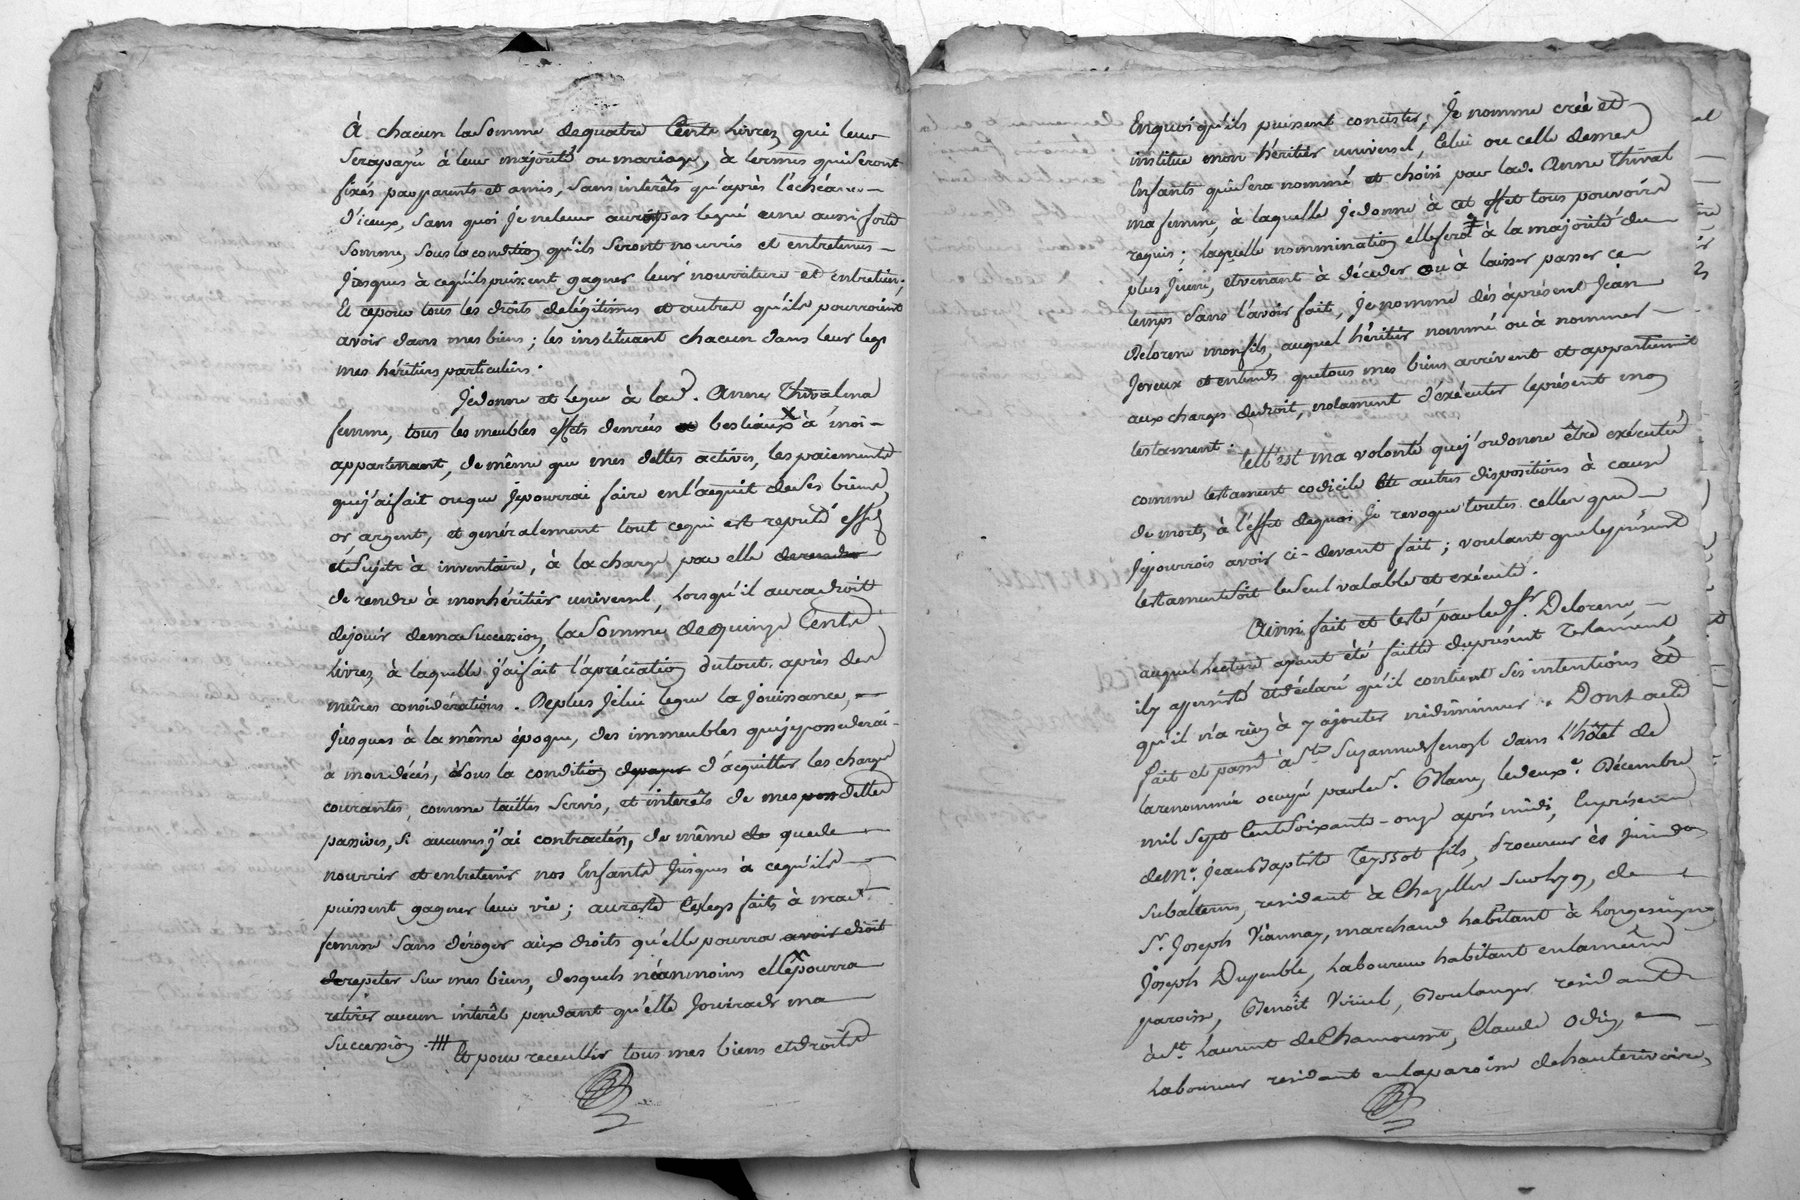 À chacun la Somme de quatre Cents Livres, qui leur
Sera payé à leur majorité ou mariage, à termes qui Seront
fixés par parents et amis, Sans intérêts qu'après l'échéance
d'iceux, Sans quoi je ne leur aurois pas legué une aussi forte
Somme, Sous la condition qu'ils Seront nourris et entretenus
Jusques à ce qu'ils puissent gagner leur nourriture et entretien.
Et ce pour tous les droits de légitimes et autres qu'ils pourroient
avoir dans mes biens ; les instituant chacun dans leur legs
mes héritiers particuliers.
Je donne et Legue à lad. Anne Thivalma
femme, tous les meubles effets denrées et bestiaux à moi
appartenant, de même que mes dettes actives, les paiements
que j'ai fait ou que je pourrai faire en l'acquit de Ses biens,
or argent, et généralement tout ce qui est reputé effet
et Sujet à inventaire, à la charge par elle de rendre
de rendre à mon héritier universel, Lorsqu'il aura droit
de jouir de ma Succession, la Somme de quinze Cents
livres, à laquelle j'ai fait l'apréciation du tout après des
mûres considérations. De plus je lui legue la Jouissance,
Jusques à la même époque, des immeubles que je possederai
à mon décès, Sous la condition de payer d'acquitter les charges
courantes, comme tailles Servis, et intérêts de mes dettes
passives, Si aucunes j'ai contractés, de même de que de
nourrir et entretenir nos Enfants Jusques à ce qu'ils
puissent gagner leur vie ; au reste Ce legs faits à mad.
femme Sans déroger aux droits qu'elle pourra avoir droit
de repeter Sur mes biens, desquels néanmoins elle pourra
retirer aucun intérêt pendant qu'elle Jouira de ma
Succession.
Et pour receuillir tous mes biens et droits
En quoi qu'ils puissent concister, Je nomme crée et
institue mon héritier universel, Celui ou celle de mes
Enfants qui Sera nommé et choisi par lad. Anne Thival
ma femme, à laquelle Je donne à cet effet tous pouvoirs
requis ; laquelle nommination elle fera à la majorité du
plus Jeune, et venant à décéder ou à laisser passer ce
temps Sans l'avoir fait, Je nomme dès àprésent Jean
Delorme mon fils, auquel héritier nommé ou à nommer
Je veux et entends que tous mes biens arrivent et appartiennent
aux charges de droit, notament d'exécuter le présent mon
testament.
Telle est ma volonté que j'ordonne être exécuté
comme testament codicile et autres dispositions à cause
de mort, à l'effet de quoi Je revoque toutes celles que
Je pourrois avoir ci-devant fait ; voulant que le présent
testament Soit le Seul valable et exécuté.
Ainsi fait et testé par led. Sr. Delorme
auquel lecture ayant été faitte du présent Testament
il y a persisté et déclaré qu'il contient Ses intentions et
qu'il n'a rien à y ajouter ni diminuer. Dont acte
fait et passé à Ste Suzanne dans l'hôtel de
la renommée occupé par le Sr. Blanc, le deuxe. Décembre
mil Sept Cent Soixante-onze après midi, En présence
de Me. Jean Baptiste Teyssot fils, Procureur ès Jurid.on
Subalterne, residant à Chazelles Sur Lyon, de
Sr. Joseph Viannay, marchand habitant à Longessaigne
Joseph Dupeuble, Laboureur habitant en la même
paroisse, Benoît Viricel, Boulanger residant
à St. Laurent de Chamousset, Claude Odin,
Laboureur residant en la paroisse de hauterivoire,